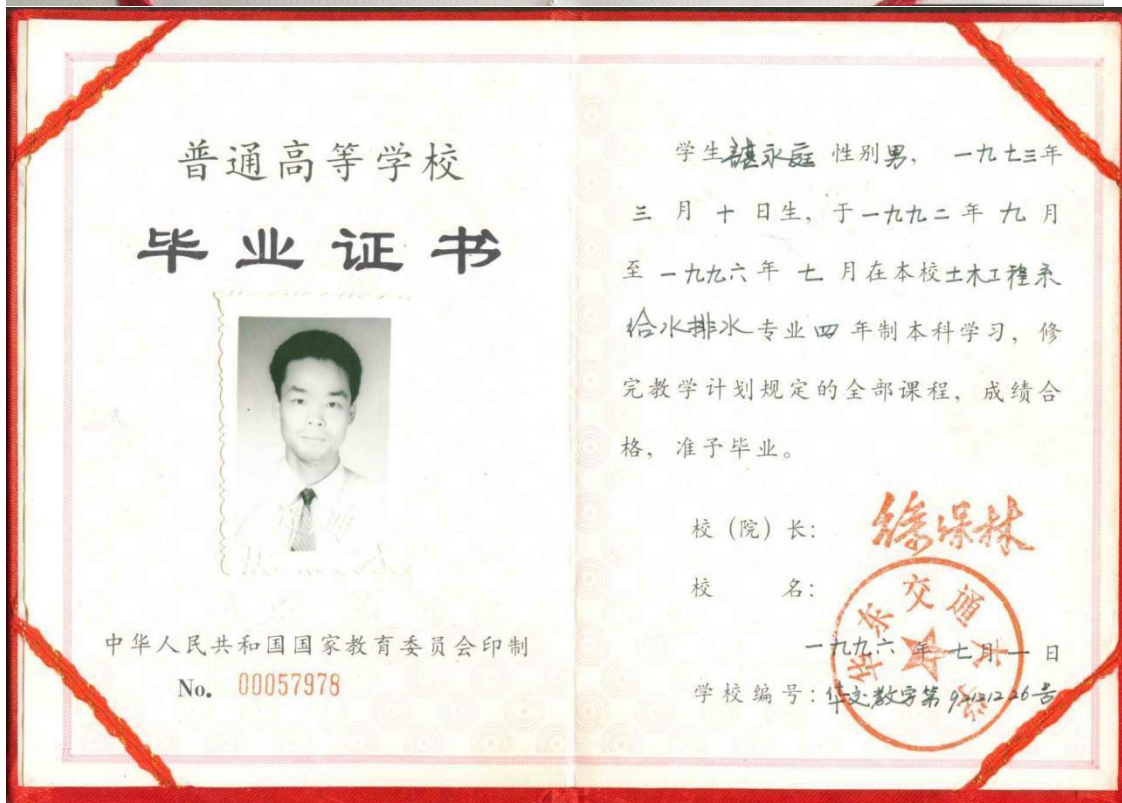 普通高等学校
毕业证书
中华人民共和国国家教育委员会印制
No. 00057978
学生 永庭 性别男, 一九七三年
三月十日生, 于一九九二年九月
至一九九六年七月在本校土木工程系
给水排水专业四年制本科学习, 修
完教学计划规定的全部课程, 成绩合
格, 准予毕业。
校(院)长: 徐保林
校名:
华东交通大学
一九九六年七月一日
学校编号: 华交教字第 号